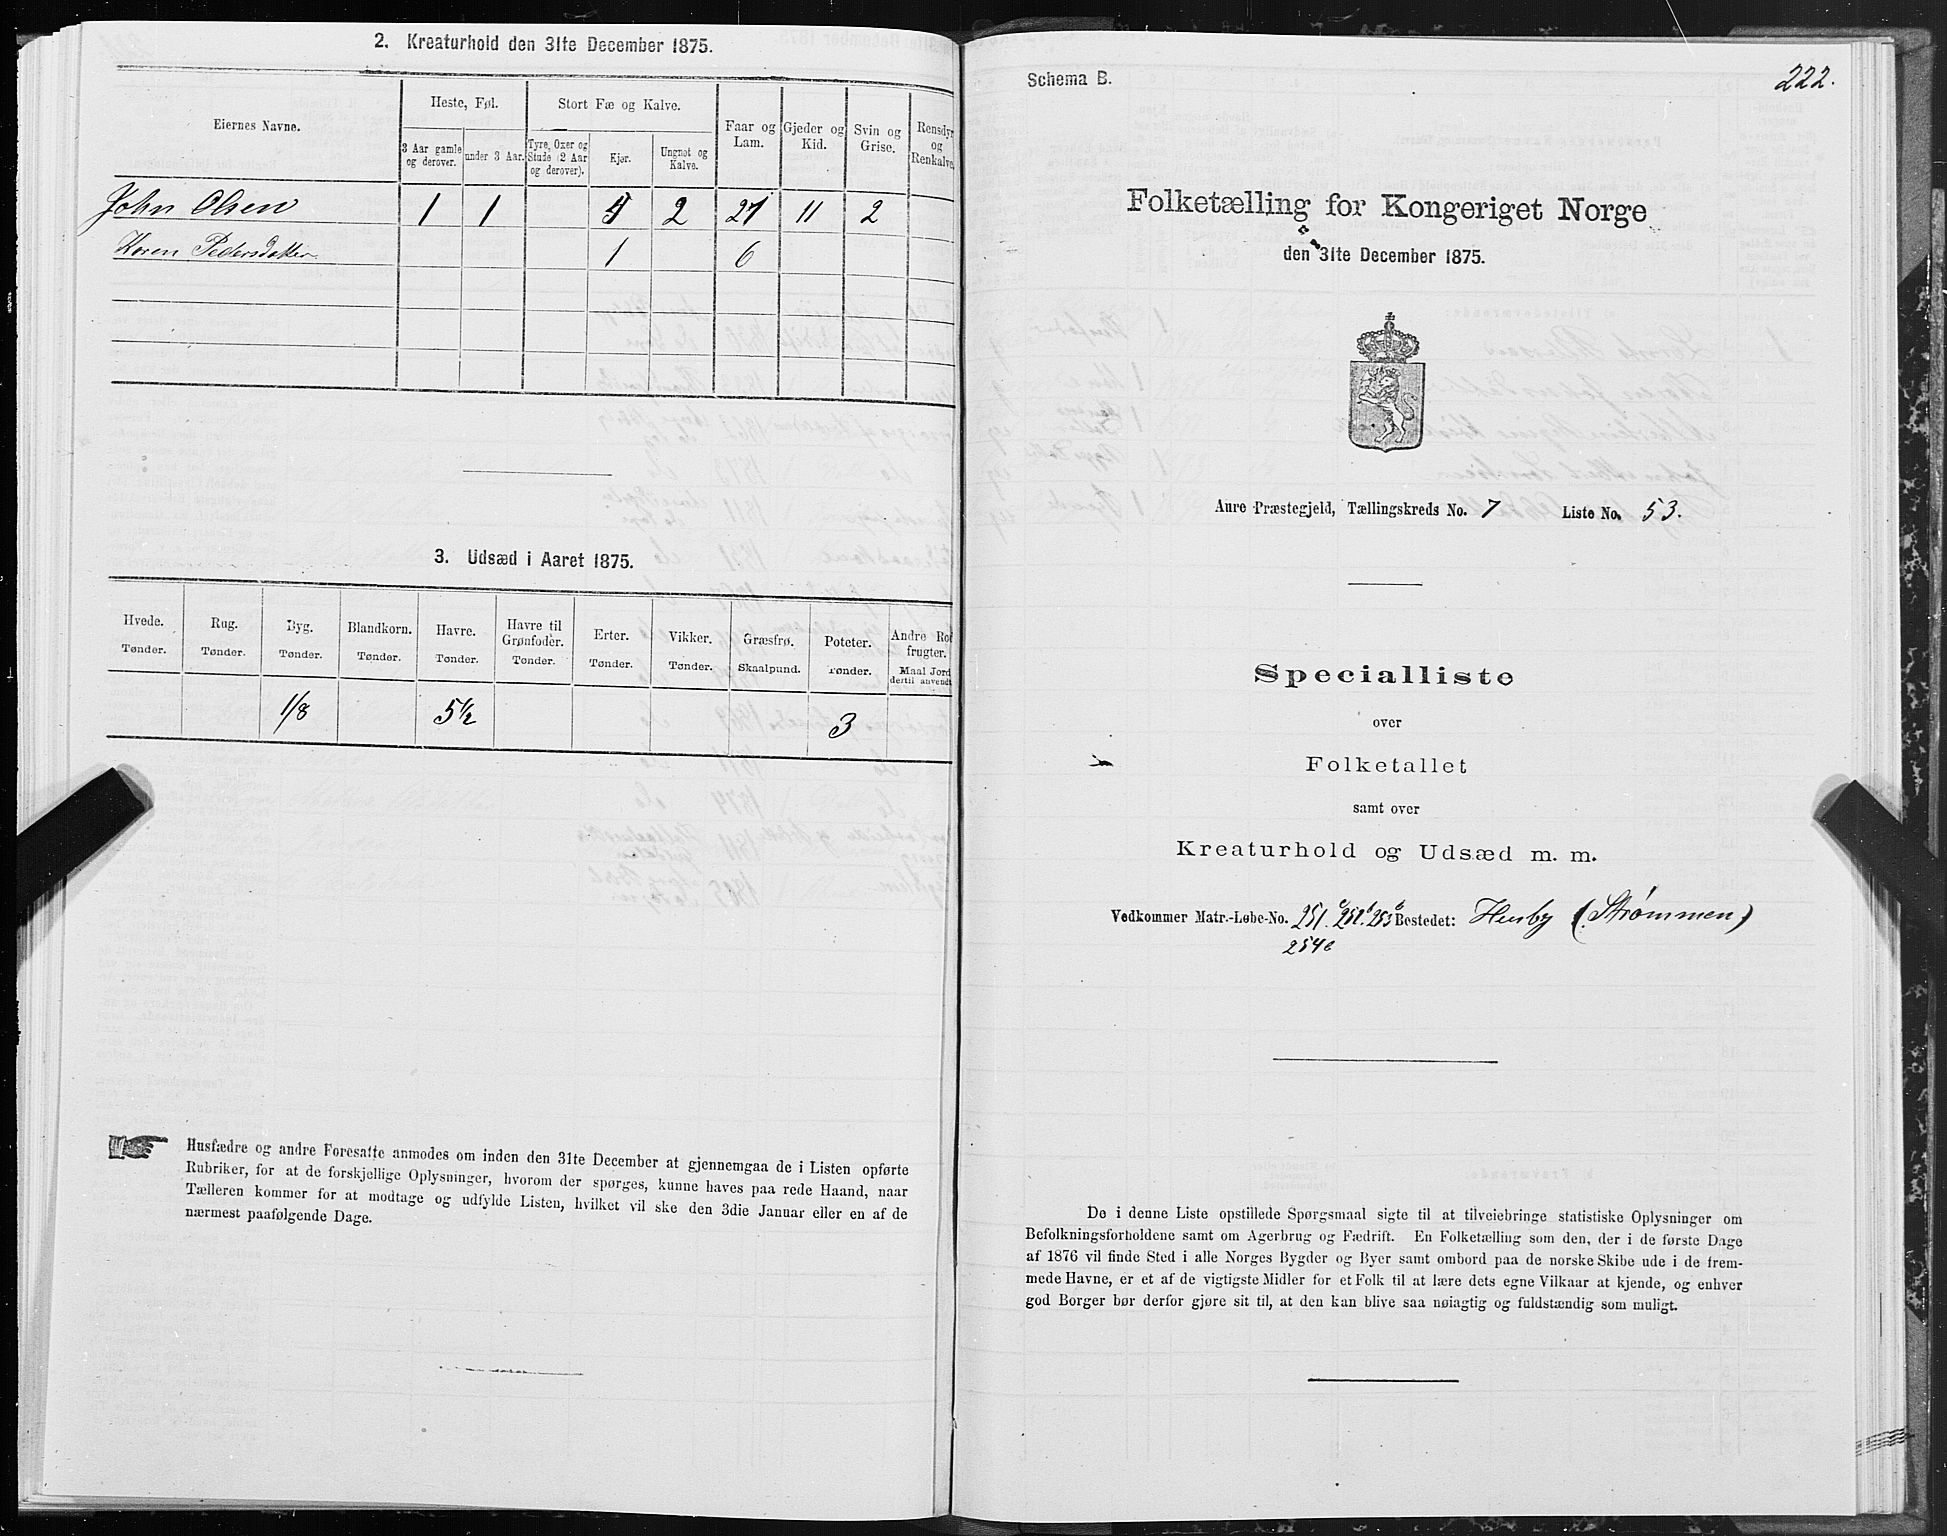 2. Kreaturhold den 31te December 1875.
Eiernes Navne.
Heste, Føl.
Stort Fæ og Kalve.
Faar og Lam.
Gjeder og Kid.
Svin og Grise.
Rensdyr og Renkalve.
3 Aar gamle og derover.
under 3 Aar.
Tyre, Oxer og Stude (2 Aar og derover).
Kjør.
Ungnøt og Kalve.
John Olsen 1 1 2 21 11 2
Karen Pedersdatter 1 6
3. Udsæd i Aaret 1875.
Hvede. Rug. Byg. Blandkorn. Havre. Havre til Grønfoder. Erter. Vikker. Græsfrø. Poteter. Andre Rodfrugter.
Tønder. Tønder. Tønder. Tønder. Tønder. Tønder. Tønder. Tønder. Skaalpund. Tønder. Maal Jord dertil anvendt
1/8 5 1/2 3
Husfædre og andre Foresatte anmodes om inden den 31te December at gjennemgaa de i Listen opførte
Rubriker, for at de forskjellige Oplysninger, hvorom der spørges, kunne haves paa rede Haand, naar
Tælleren kommer for at modtage og udfylde Listen, hvilket vil ske den 3die Januar eller en af de
nærmest paafølgende Dage.
Schema B.
222.
Folketælling for Kongeriget Norge
den 31te December 1875.
Aure Præstegjeld, Tællingskreds No. 7 Liste No. 53.
Specialliste
over
Folketallet
samt over
Kreaturhold og Udsæd m. m.
Vedkommer Matr.-Løbe-No. 251. 252. 253 Bestedet: Husby (Strømmen)
254
De i denne Liste opstillede Spørgsmaal sigte til at tilveiebringe statistiske Oplysninger om
Befolkningsforholdene samt om Agerbrug og Fædrift. En Folketælling som den, der i de første Dage
af 1876 vil finde Sted i alle Norges Bygder og Byer samt ombord paa de norske Skibe ude i de frem-
mede Havne, er et af de vigtigste Midler for et Folk til at lære dets egne Vilkaar at kjende, og enhver
god Borger bør derfor gjøre sit til, at den kan blive saa nøiagtig og fuldstændig som muligt.